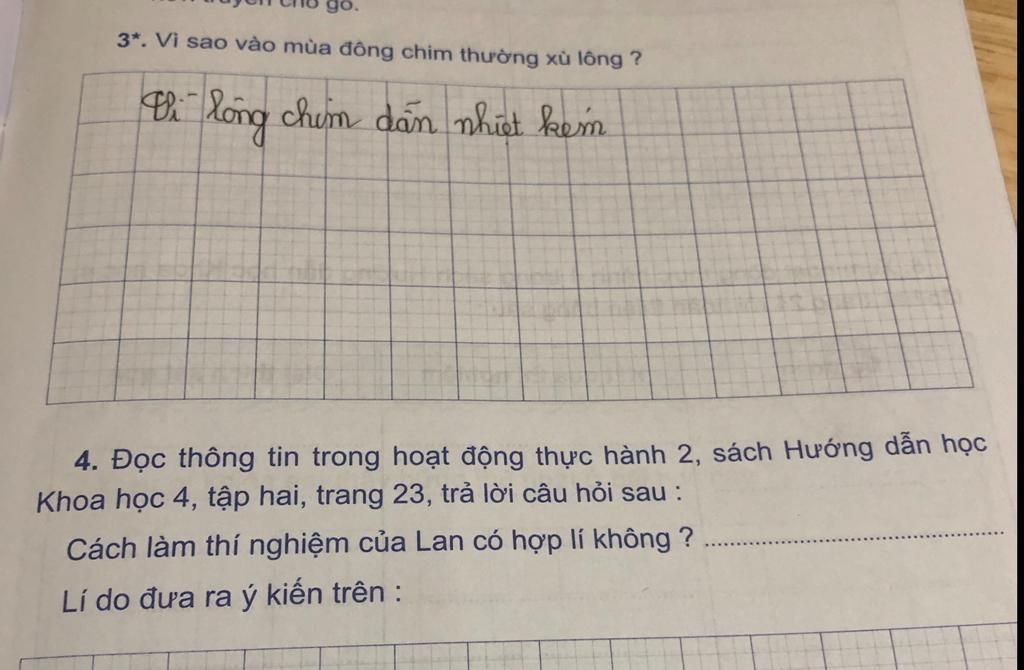 cho gỗ.
3*. Vì sao vào mùa đông chim thường xù lông ?
Vì lông chim dẫn nhiệt kém
4. Đọc thông tin trong hoạt động thực hành 2, sách Hướng dẫn học
Khoa học 4, tập hai, trang 23, trả lời câu hỏi sau :
Cách làm thí nghiệm của Lan có hợp lí không ?
Lí do đưa ra ý kiến trên :